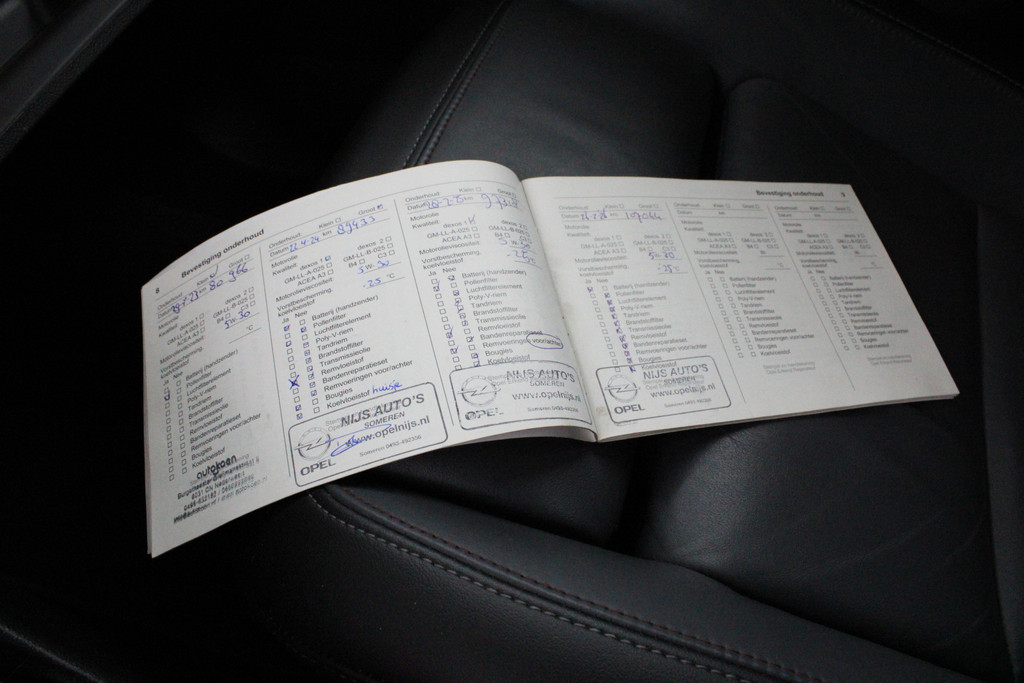 8
Bevestiging onderhoud
Onderhoud: Klein Groot
Datum km 80 966
Motorolie
Kwaliteit: dexos 1 dexos 2
GM-LL-A-025 GM-LL-B-025
ACEA A3 B4 C3
Motorolieviscositeit 5w30
Vorstbescherming, °C
koelvloeistof
Ja Nee
Batterij (handzender)
Pollenfilter
Luchtfilterelement
Poly-V-riem
Tandriem
Brandstoffilter
Transmissieolie
Remvloeistof
Bandenreparatieset
Remvoeringen voor/achter
Bougies
Koelvloeistof
autokoen
Onderhoud: Klein Groot
Datum 22.4.24 km 89433
Motorolie
Kwaliteit: dexos 1 dexos 2
GM-LL-A-025 GM-LL-B-025
ACEA A3 B4 C3
Motorolieviscositeit 5w30
Vorstbescherming, -25 °C
koelvloeistof
Ja Nee
Batterij (handzender)
Pollenfilter
Luchtfilterelement
Poly-V-riem
Tandriem
Brandstoffilter
Transmissieolie
Remvloeistof
Bandenreparatieset
Remvoeringen voor/achter
Bougies
Koelvloeistof huisje
NIJS AUTO'S
SOMEREN
www.opelnijs.nl
OPEL Someren 0493-492206
Onderhoud: Klein Groot
Datum km
Motorolie
Kwaliteit: dexos 1 dexos 2
GM-LL-A-025 GM-LL-B-025
ACEA A3 B4 C3
Motorolieviscositeit 5w30
Vorstbescherming, -25
koelvloeistof
Ja Nee
Batterij (handzender)
Pollenfilter
Luchtfilterelement
Poly-V-riem
Tandriem
Brandstoffilter
Transmissieolie
Remvloeistof
Bandenreparatieset
Remvoeringen voor/achter
Bougies
Koelvloeistof
NIJS AUTO'S
SOMEREN
www.opelnijs.nl
OPEL
Bevestiging onderhoud 9
Onderhoud: Klein Groot
Datum km 107064
Motorolie
Kwaliteit: dexos 1 dexos 2
GM-LL-A-025 GM-LL-B-025
ACEA A3 B4 C3
Motorolieviscositeit
Vorstbescherming, -25 °C
koelvloeistof
Ja Nee
Batterij (handzender)
Pollenfilter
Luchtfilterelement
Poly-V-riem
Tandriem
Brandstoffilter
Transmissieolie
Remvloeistof
Bandenreparatieset
Remvoeringen voor/achter
Bougies
Koelvloeistof
NIJS AUTO'S
SOMEREN
www.opelnijs.nl
OPEL
Onderhoud: Klein Groot
Datum km
Motorolie
Kwaliteit: dexos 1 dexos 2
GM-LL-A-025 GM-LL-B-025
ACEA A3 B4 C3
Motorolieviscositeit W
Vorstbescherming, °C
koelvloeistof
Ja Nee
Batterij (handzender)
Pollenfilter
Luchtfilterelement
Poly-V-riem
Tandriem
Brandstoffilter
Transmissieolie
Remvloeistof
Bandenreparatieset
Remvoeringen voor/achter
Bougies
Koelvloeistof
Onderhoud: Klein Groot
Datum km
Motorolie
Kwaliteit: dexos 1 dexos 2
GM-LL-A-025 GM-LL-B-025
ACEA A3 B4 C3
Motorolieviscositeit W
Vorstbescherming, °C
koelvloeistof
Ja Nee
Batterij (handzender)
Pollenfilter
Luchtfilterelement
Poly-V-riem
Tandriem
Brandstoffilter
Transmissieolie
Remvloeistof
Bandenreparatieset
Remvoeringen voor/achter
Bougies
Koelvloeistof